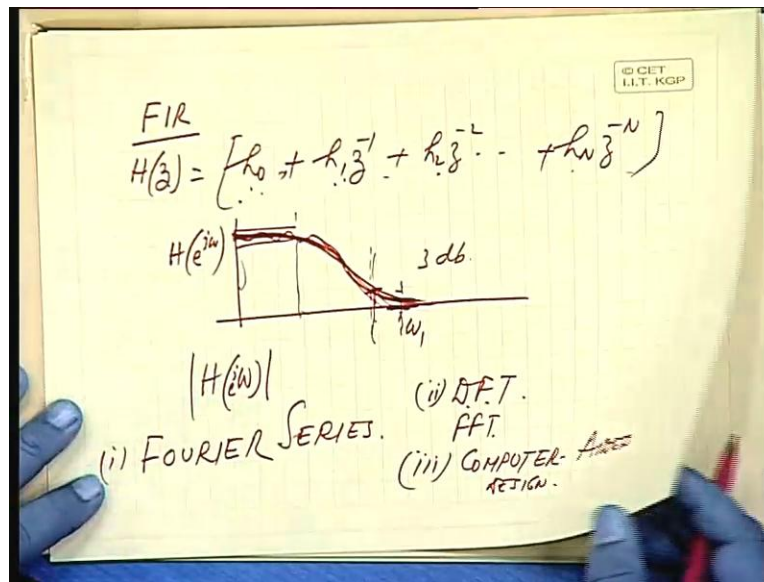 © CET
I.I.T. KGP
FIR
H(z) = [h₀ + h₁z⁻¹ + h₂z⁻² - - + h_N z^-N]
H(e^jω)
3 db.
ω₁
|H(e^jω)|
(i) FOURIER SERIES.
(ii) D.F.T.
FFT.
(iii) COMPUTER- AIDED
DESIGN.